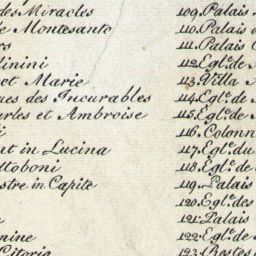 des Miracles
e Montesanto
rs
linini
et Marie
ues des Incurables
arles et Ambroise
i
nt in Lucina
ttoboni
stre in Capite
a
nine
Citorio
109. Palais
110. Palais
111. Palais
112. Egl.e de
113. Villa
114. Egl.e de
115. Egl.e de
116. Colonn
117. Egl.e du
118. Egl.e de
119. Palais
120. Egl.e des
121. Palais
122. Egl.e de
123. Restes